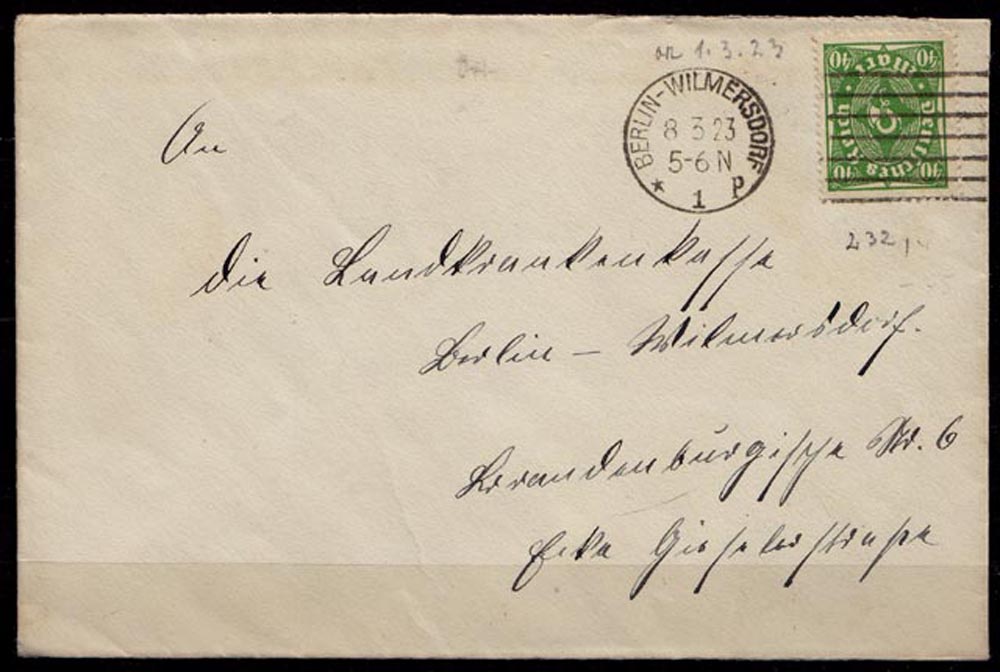 on 1.3.23
BERLIN-WILMERSDORF
8 3 23
5-6 N
* 1 p
40 Mark 40
Deutsches Reich
40 40
232
An
die Landkrankenkasse
Berlin – Wilmersdorf.
Brandenburgische Str. 6
Ecke Gieselerstraße